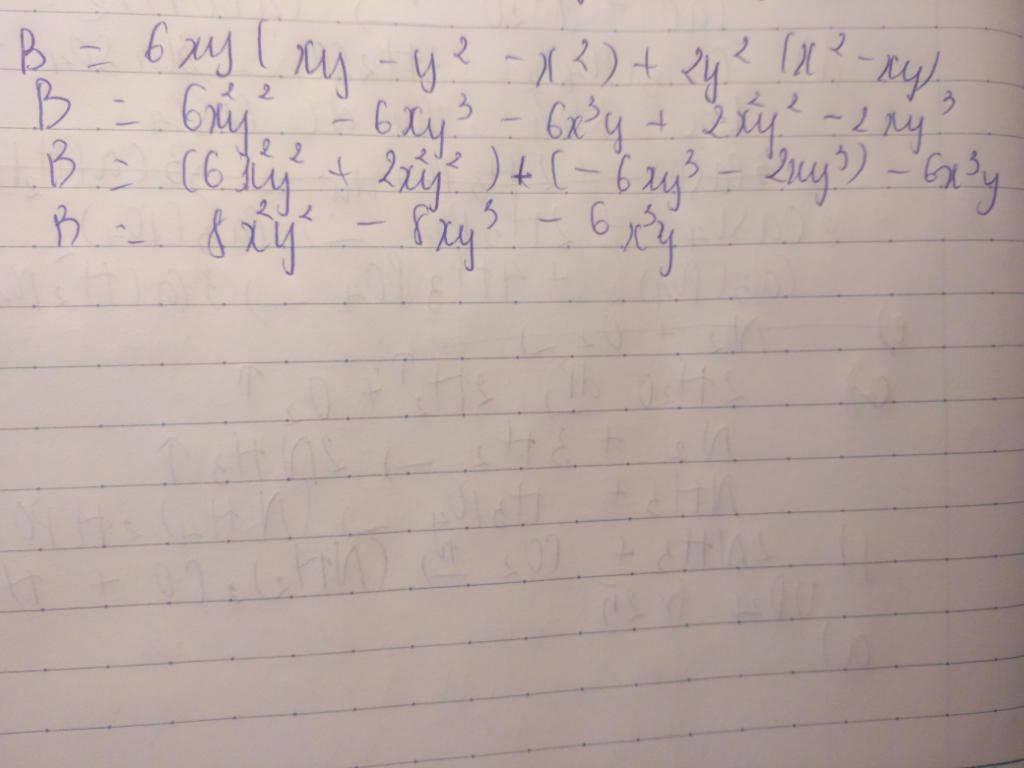 B = 6xy( xy - y² - x²) + 2y² (x² - xy)
B = 6x²y² - 6xy³ - 6x³y + 2x²y² - 2xy³
B = (6x²y² + 2x²y²) + (- 6xy³ - 2xy³) - 6x³y
B = 8x²y² - 8xy³ - 6x³y